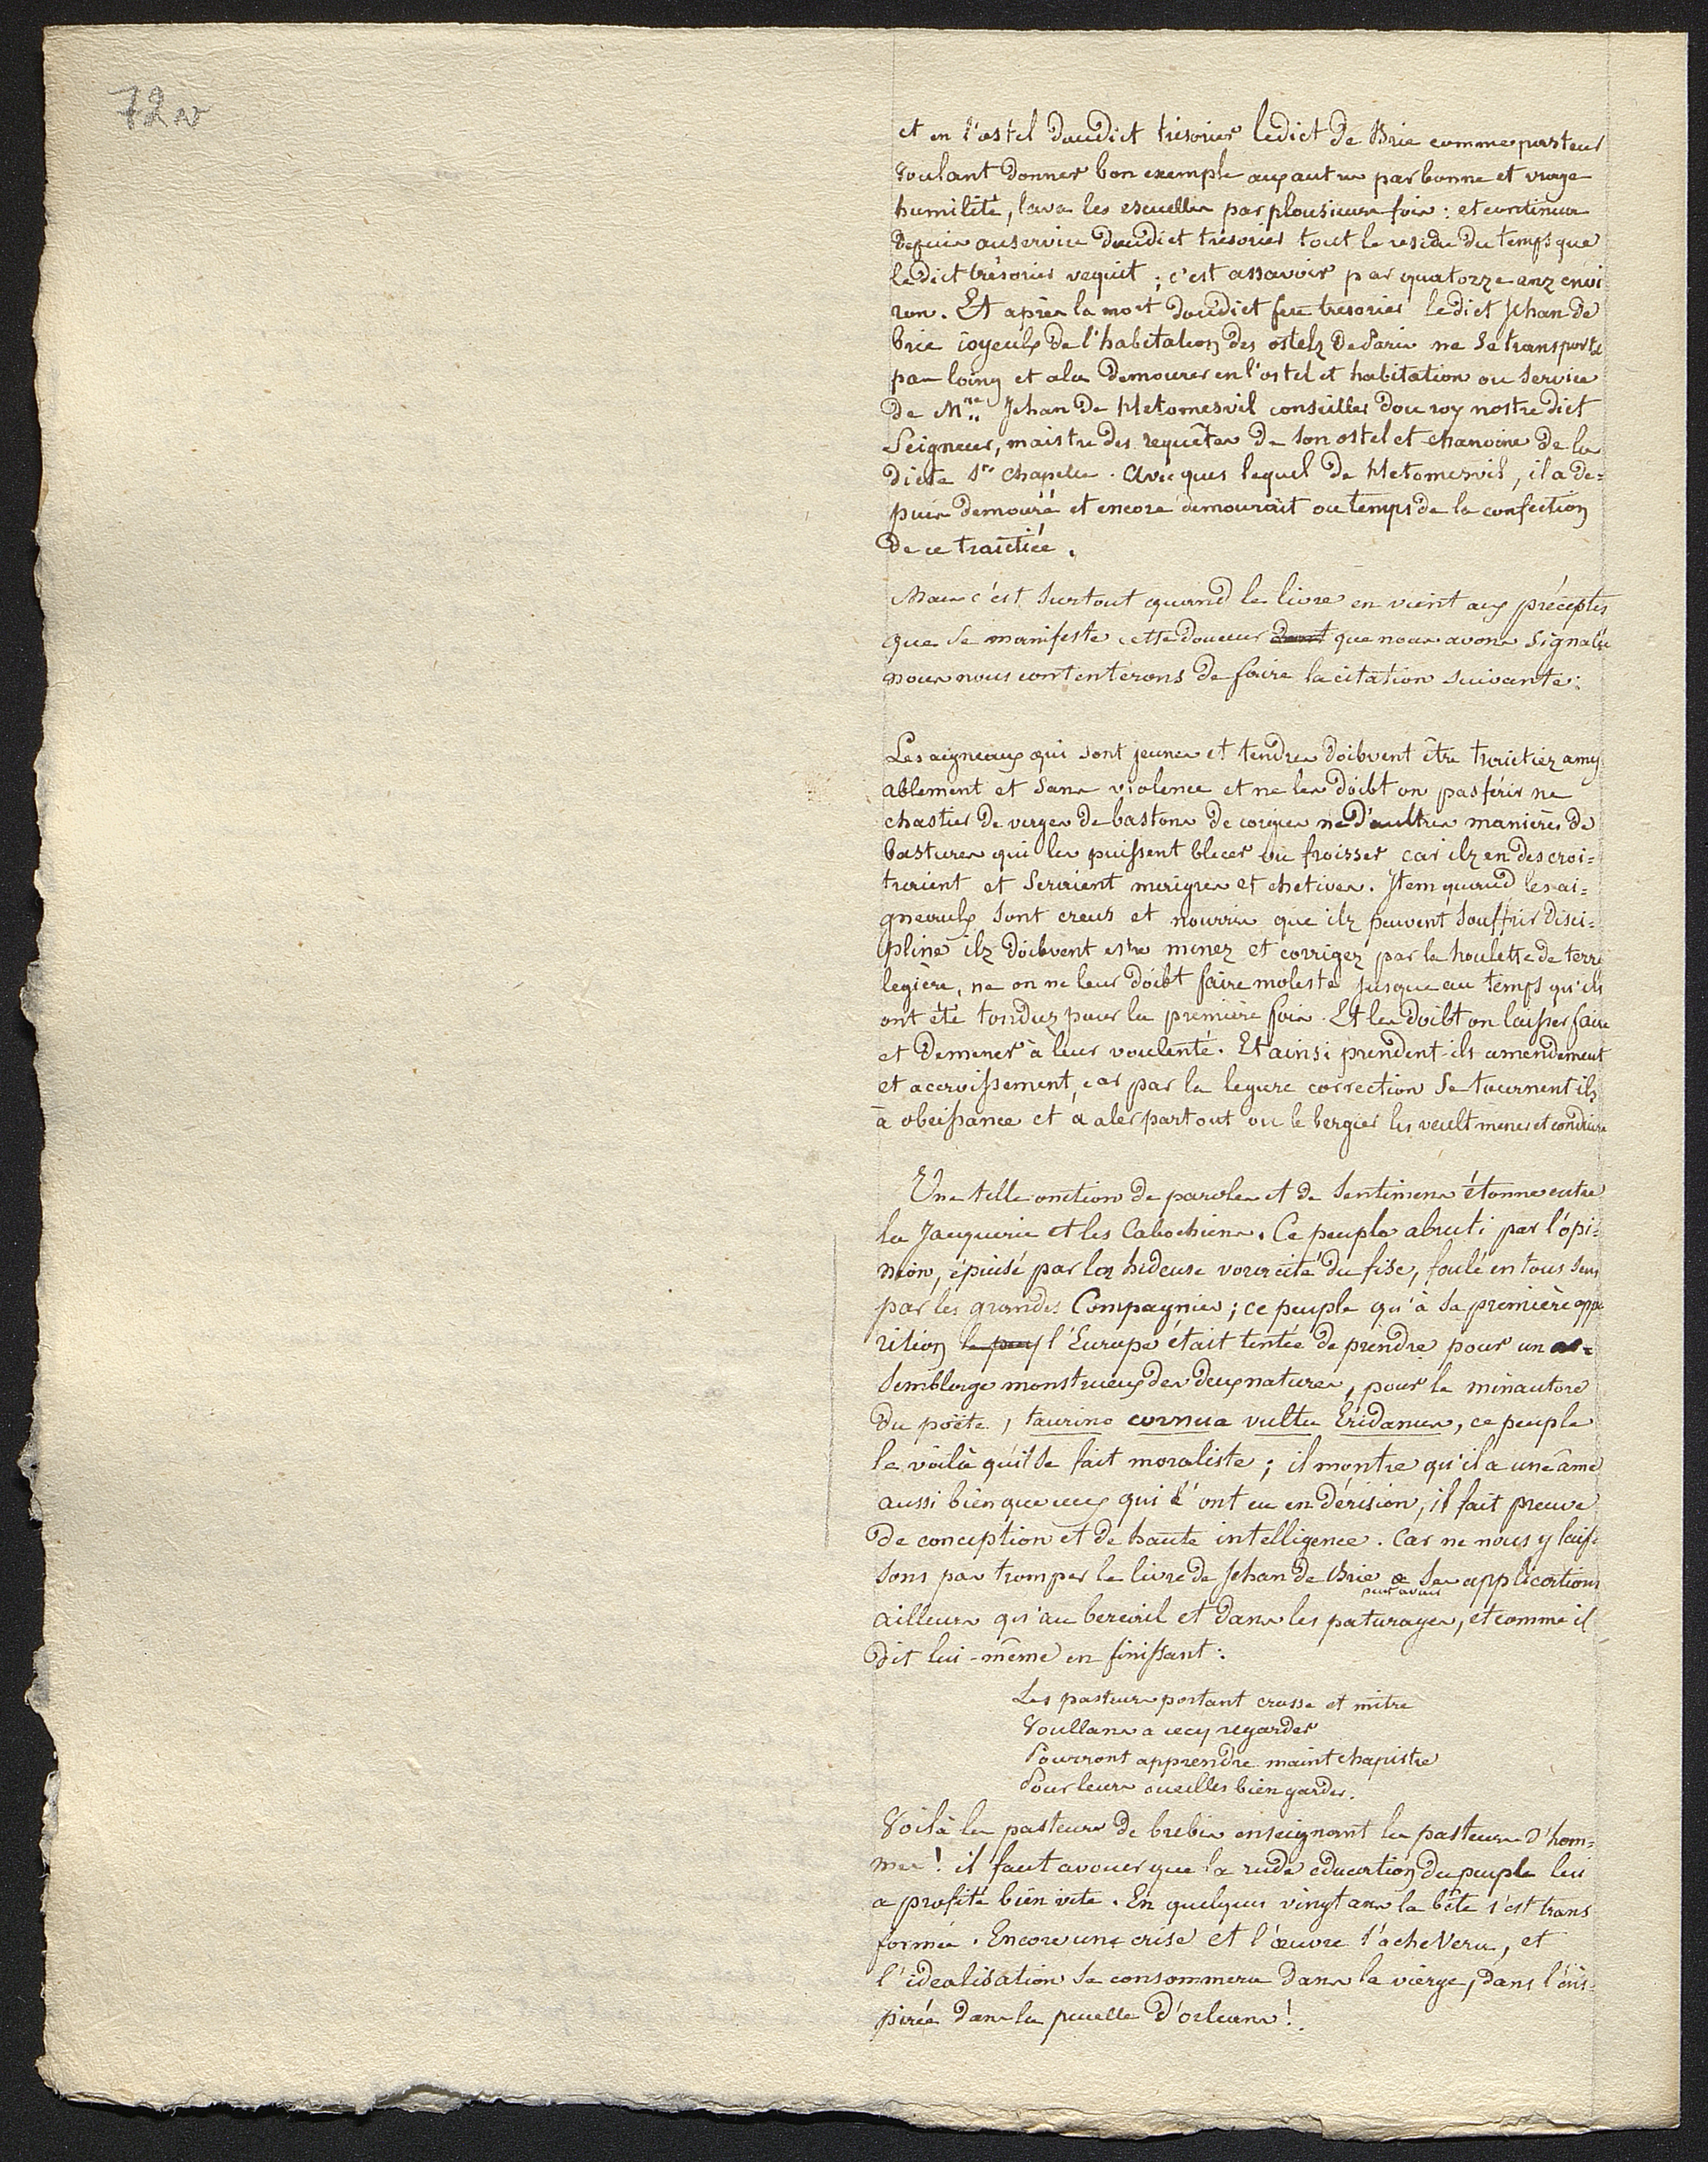 72 v
et en l'ostel doudict trésorier ledict de Brie comme pasteur
voulant donner bon exemple aux autres par bonne et vraye
humilité, lava les escuelles par plousieurs fois : et continua
depuis au service doudict trésorier tout le residu du temps que
ledict trésorier vequit ; c'est assavoir par quatorze anz envi-
ron. Et après la mort doudict feu tresorier ledict Jehan de
Brie ioyeulx de l'habitation des ostelz de Paris ne se transporta
pas loing et ala demourer en l'ostel et habitation ou service
de Mre Jehan de Hetomesvil conseiller dou roy nostre dict
Seigneur, maistre des requêtes de son ostel et chanoine de la
dicte Ste Chapelle. Avecques lequel de Hetomesvil, il a de=
puis demouré et encore demourait ou temps de la confection
de ce traictiée.
Mais c'est surtout quand le livre en vient aux préceptes
que se manifeste cette douceur dont que nous avons signalée
nous nous contenterons de faire la citation suivante :
Les aigneaux qui sont jeunes et tendres doibvent être traictiez amy
ablement et sans violence et ne les doibt on pas férir ne
chastier de verges de bastons de corgies ne d'aultres manières de
bastures qui les puissent blecer ou froisser car ilz en descroi=
traient et seraient maigres et chetives. Item quand les ai=
gneaulx sont creus et nourris que ilz peuvent souffrir disci=
pline ilz doibvent estre menez et corrigez par la houlette de terre
legière, ne on ne leur doibt faire moleste jusque au temps qu'ils
ont été tonduz pour la première fois. Et les doibt on laisser faire
et demener à leur voulenté. Et ainsi prendent-ils amendement
et accroissement, car par la legiere correction se tournent ils
à obeissance et à aler partout ou le bergier les veult mener et conduire
Une telle onction de paroles et de sentimens étonne entre
la Jacquerie et les Cabochiens. Ce peuple abruti par l'opi=
nion, épuisé par la hideuse voracité du fisc, foulé en tous sens
par les grandes Compagnies ; ce peuple qu'à sa première appa
rition le peup l'Europe était tentée de prendre pour un as=
semblage monstrueux des deux natures, pour le minautore
du poète, taurino cornua vultu Eridanus, ce peuple
le voilà qu'il se fait moraliste ; il montre qu'il a une âme
aussi bien que ceux qui l'ont eu en dérision, il fait preuve
de conception et de haute intelligence. Car ne nous y lais-
sons pas tromper le livre de Jehan de Brie a ses applications
ailleurs qu'au bercail et dans les paturages, et comme il
dit lui-même en finissant :
Les pasteurs portant crosse et mitre
Voullans a cecy regarder
Pourront apprendre maint chapistre
Pour leurs oueilles bien garder.
Voilà les pasteurs de brebis enseignant les pasteurs d'hom=
mes ! il faut avouer que la rude éducation du peuple lui
a profité bien vite. En quelques vingt ans la bête s'est trans
formée. Encore une crise et l'œuvre s'achevera, et
l'idealisation se consommera dans la vierge, dans l'ins-
pirée dans la pucelle d'orleans !